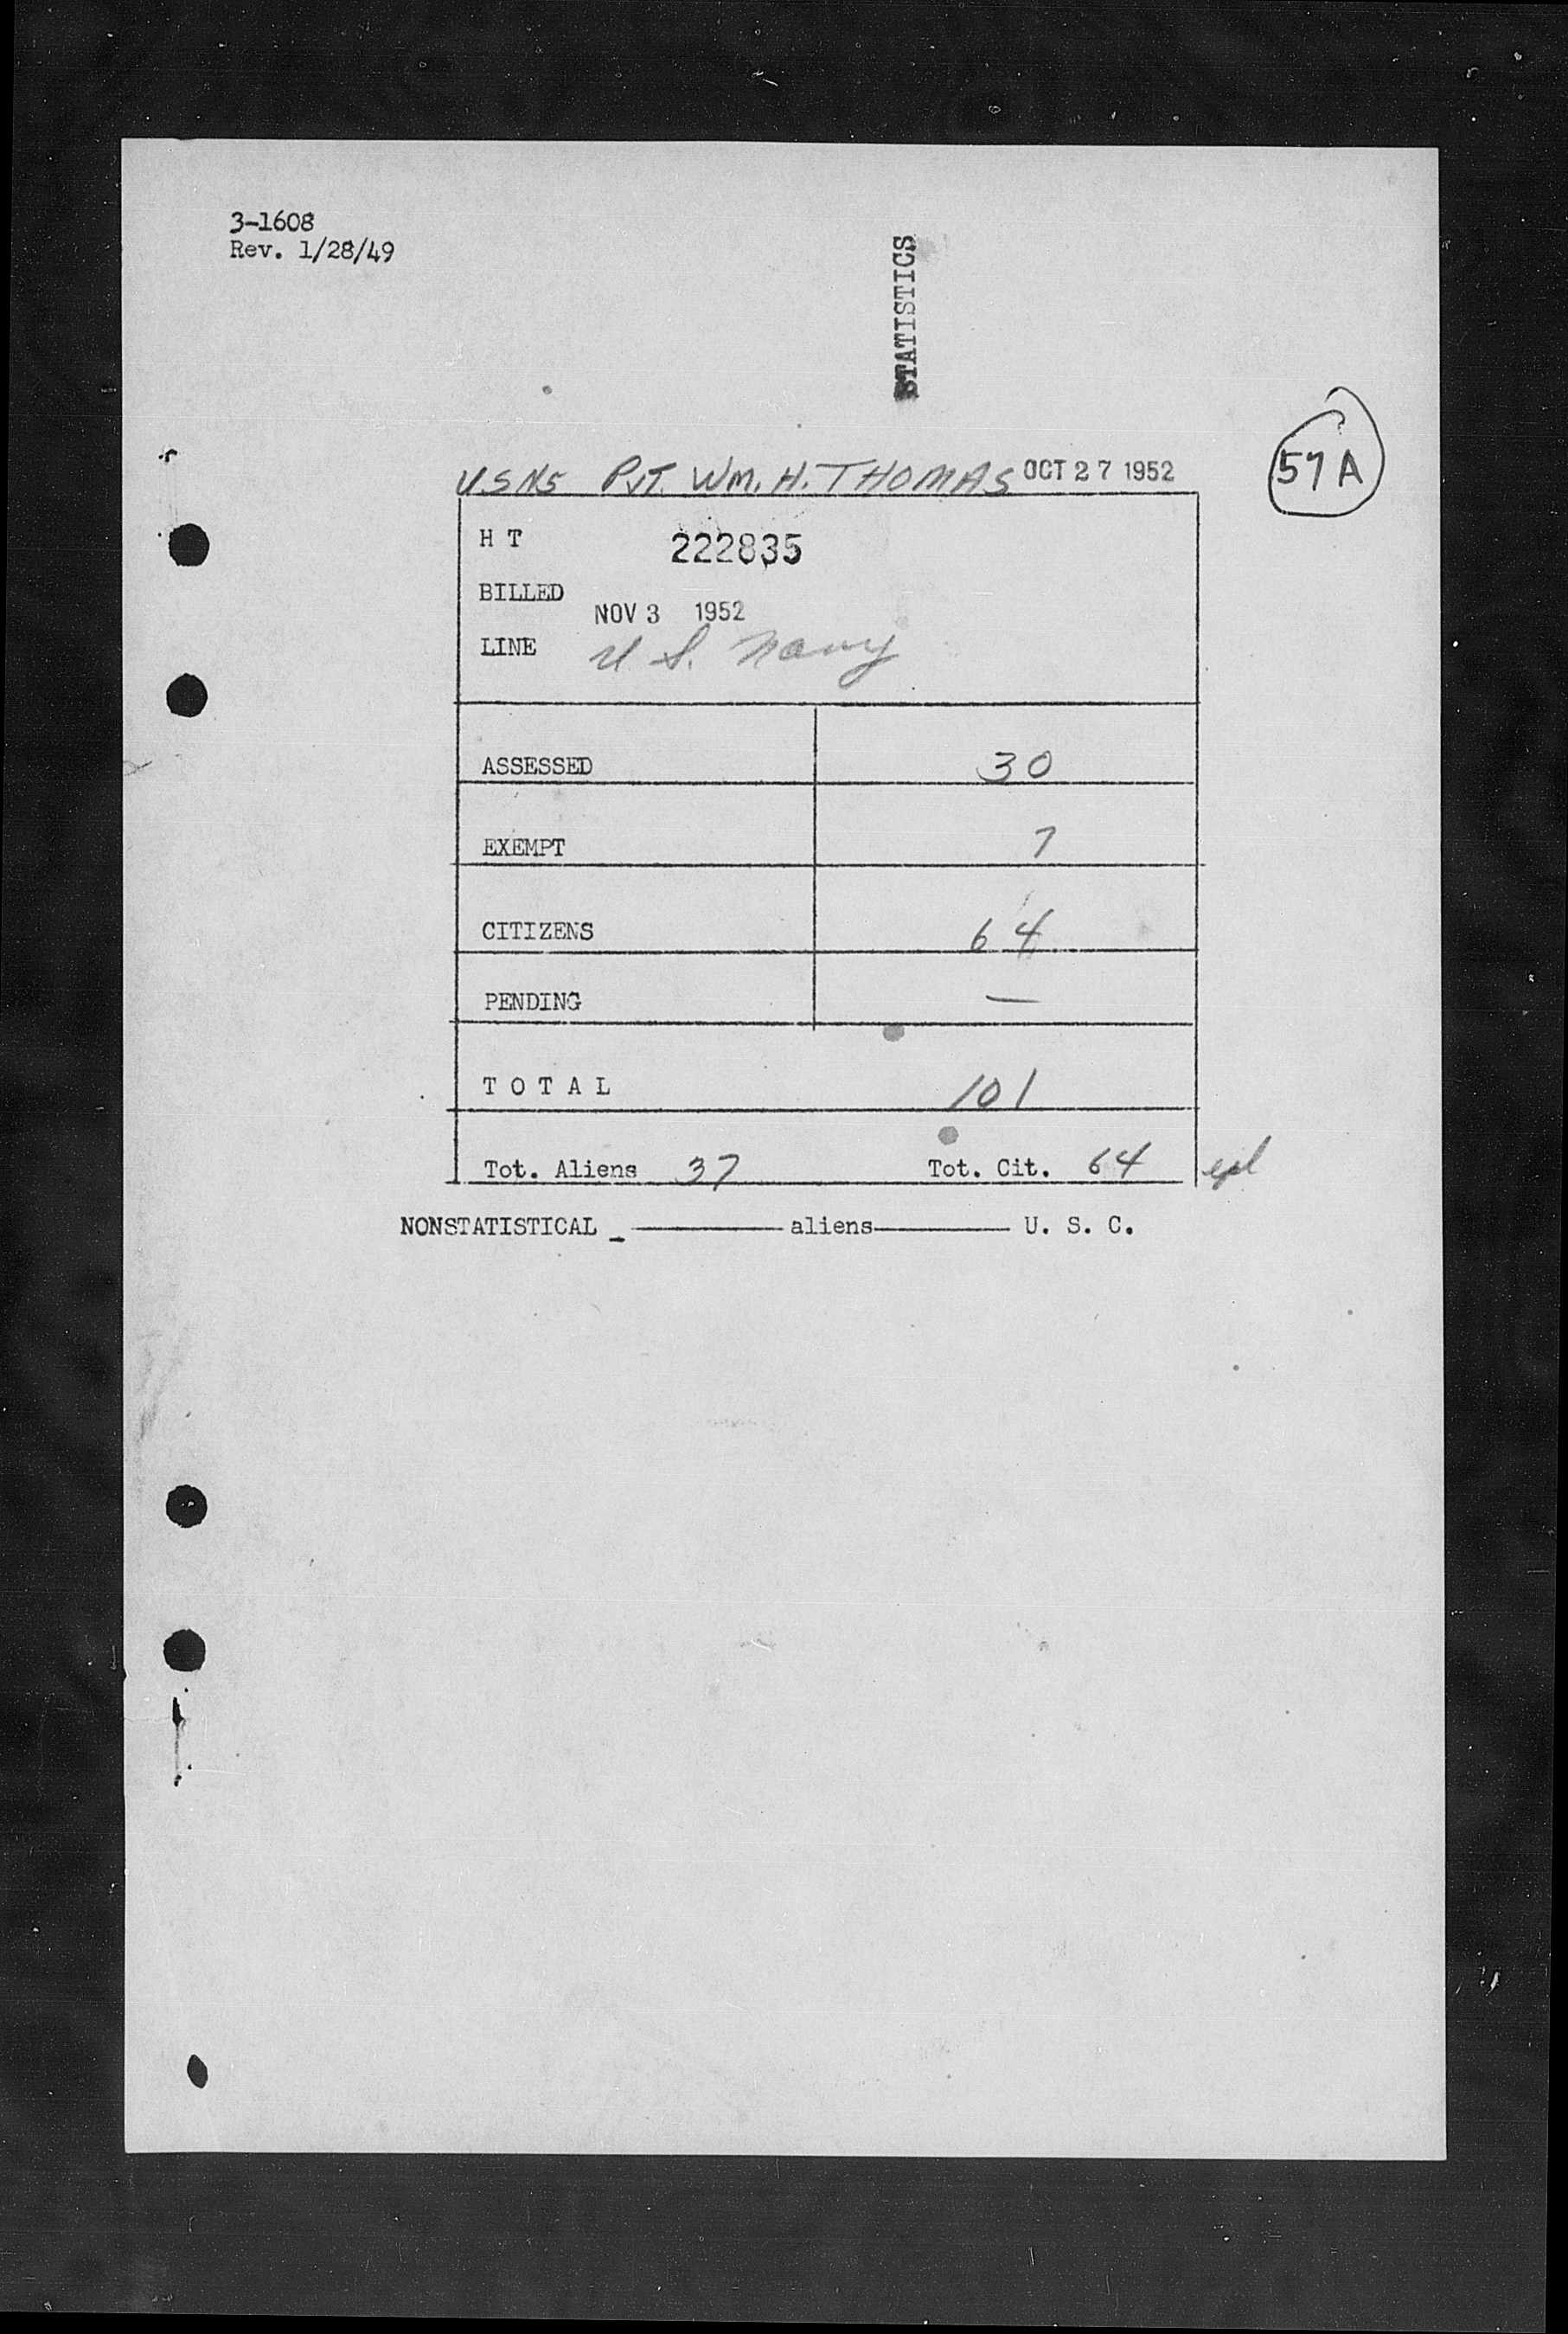 3-1608
Rev. 1/28/49
STATISTICS
USNS PVT. WM. H. THOMAS OCT 27 1952
57A
H T 222835
BILLED NOV 3 1952
LINE U S. Navy
ASSESSED 30
EXEMPT 7
CITIZENS 64
PENDING —
T O T A L 101
Tot. Aliens 37 Tot. Cit. 64
NONSTATISTICAL _ ———— aliens———— U. S. C.